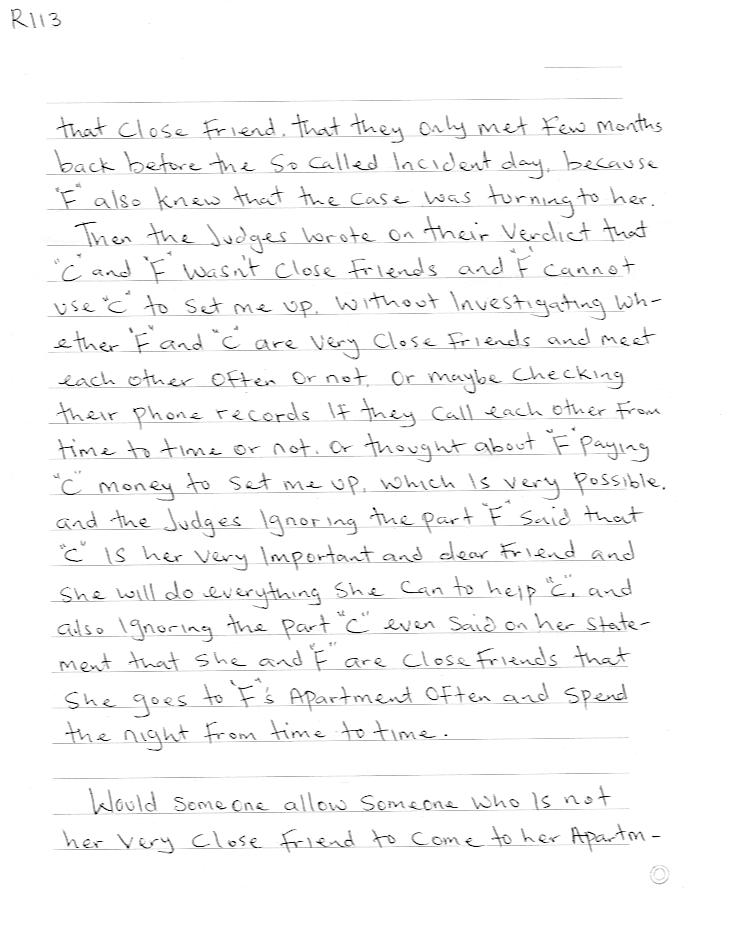 R113
that Close Friend. that they only met few months
back before the So Called Incident day, because
"F" also knew that the case was turning to her.
Then the Judges wrote on their Verdict that
"C" and "F" wasn't Close Friends and "F" cannot
use "C" to set me up. Without Investigating wh-
ether "F" and "C" are Very Close Friends and meet
each other Often Or not. Or maybe Checking
their phone records If they Call each other From
time to time or not. Or thought about "F" Paying
"C" money to set me up, which Is very Possible.
and the Judges Ignoring the part "F" Said that
"C" Is her Very Important and dear Friend and
She will do everything She Can to help "C", and
also Ignoring the part "C" even Said on her State-
ment that She and "F" are Close Friends that
She goes to "F"s Apartment Often and Spend
the night From time to time.
Would Some one allow Someone Who Is not
her Very Close Friend to Come to her Apartm-